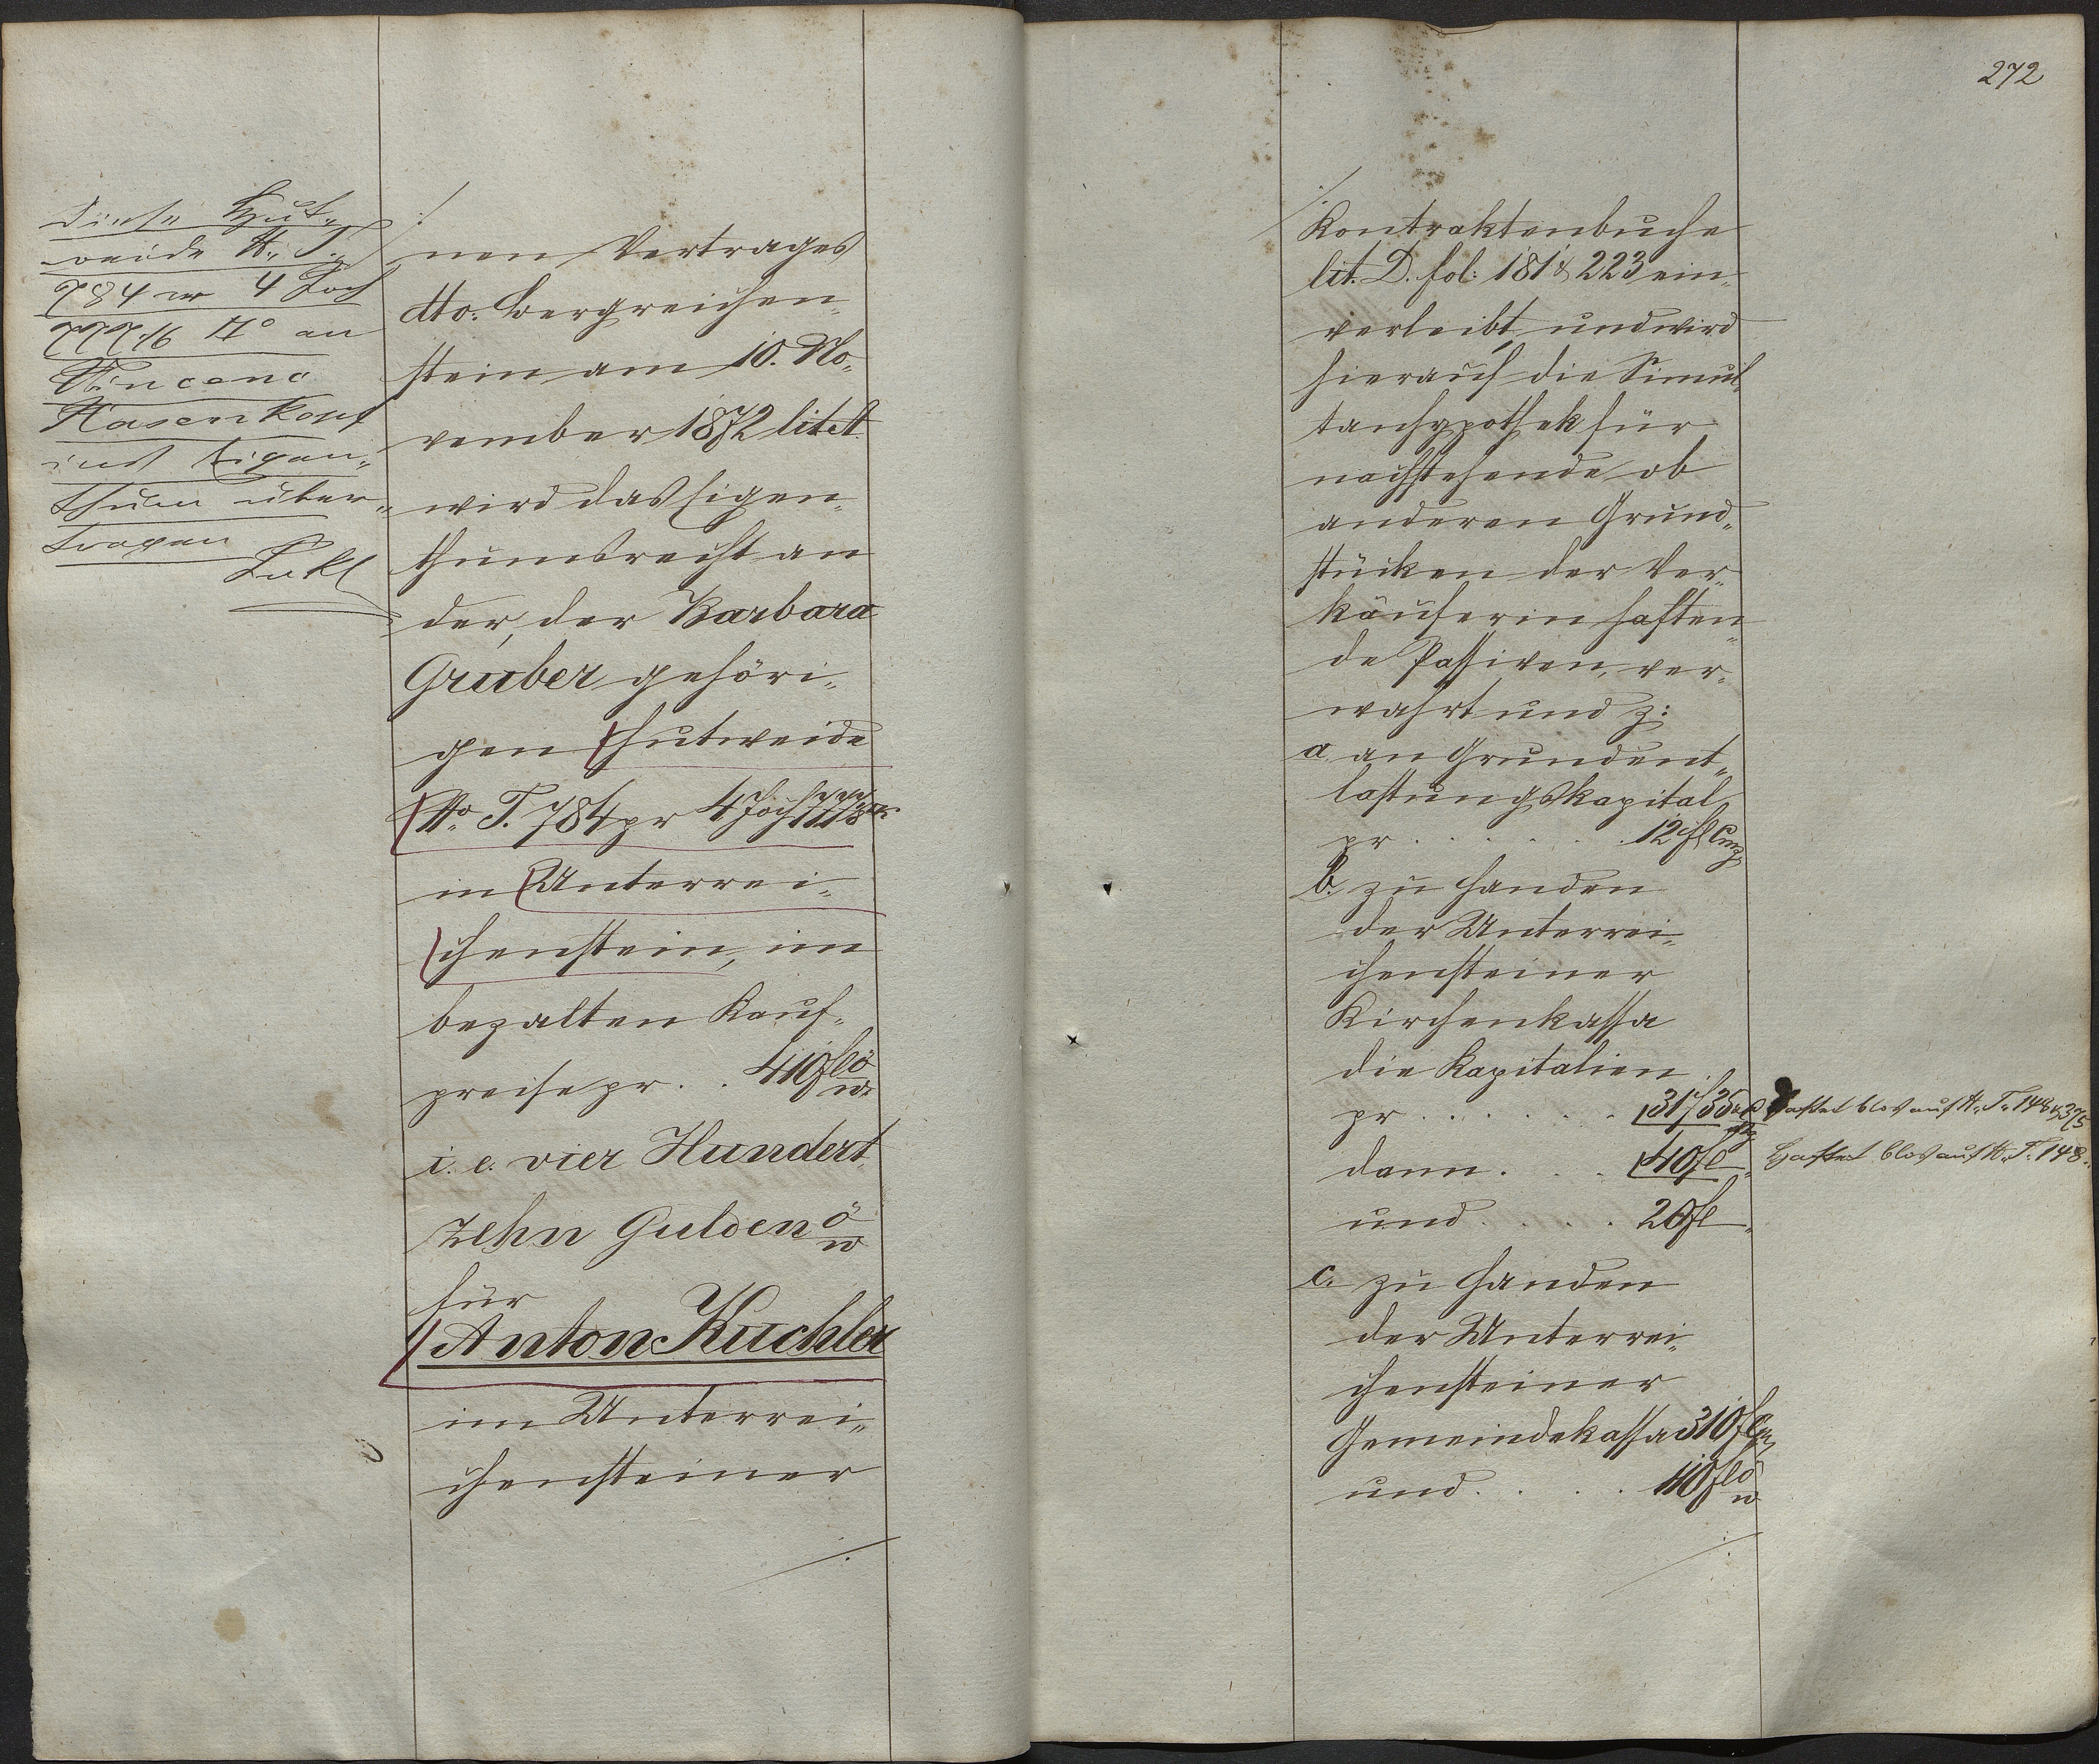 Diese Hut„
weide N. T.
784 pr 4 Joch
777 4/6 □° an
Vincenc
Hasenkopf
ins Eigen„
thum über„
tragen
./.
nen Vertrages
dto. Bergreichen„
stein am 10. No„
vember 1872 lit A
wird das Eigen„
thumsrecht an
der, der Barbara
Gruber gehöri„
gen Hutweide
No. T. 784 pr 4 Joch 777
in Unterrei„
chenstein, im
bezalten Kauf„
preise pr . . 410 fl ö
w.
i. e. vier Hundert
zehn Gulden ö
w
für
Anton Kuchler
im Unterrei„
chensteiner
./.
272
./.
Kontraktenbuche
lit. D. fol: 181 & 223 ein„
verleibt, und wird
hierauf die Simul
tanhypothek für
nachstehende ob
anderen Grund„
stücken der Ver„
käuferin haften„
de Passiven, ver„
wahrt und z:
a. an Grundent„
lastungskapital
pr . . . . . . 12 fl Cmz
b. zu Handen
der Unterrei„
chensteiner
Kirchenkassa
die Kapitalien
pr . . . . . . 31 f 35 Haftet blos auf N. T. 148 & 375
dann . . . 40 fl „ Haftet blos auf N. T. 148.
und . . . . 20 fl „
c. zu Handen
der Unterrei„
chensteiner
Gemeindekassa 310 fl Cm
und . . . . 110 fl ö
w
./.